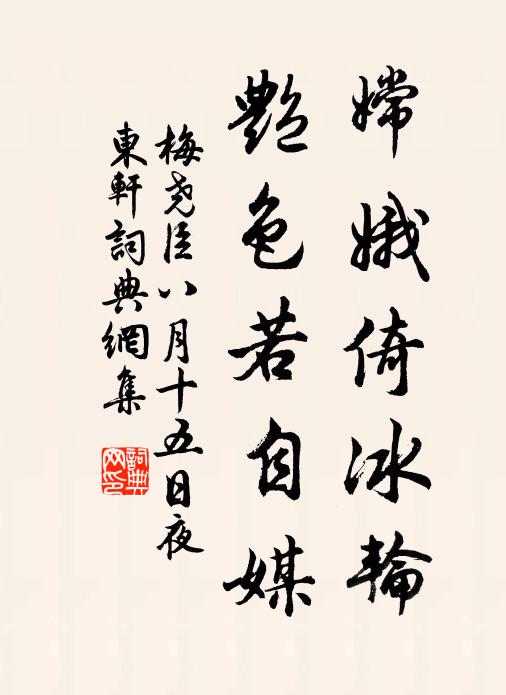 嫦娥倚冰輪
艷色若自媒
梅尧臣八月十五日夜
東軒詞典網集
詞典网印